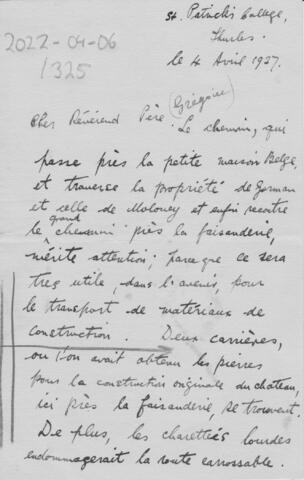 St. Patrick's College,
2022-04-06
Thurles.
/325
le 4 Avril 1927.
Cher Révérend Père (Grégoire)
Le chemin, qui
passe près la petite maison Belge,
et traverse la propriété de Gorman
et celle de Moloney et enfin recontre
le grand chemin près la faisanderie,
mérite attention; parce que ce sera
treq utile, dans l'avenir, pour
le transport de matériaux de
construction. Deux carrières,
ou l'on avait obtenu les pierres
pour la construction originale du château,
ici près la faisanderie, se trouvent.
De plus, les charettes lourdes
endommagerait la route carrossable.